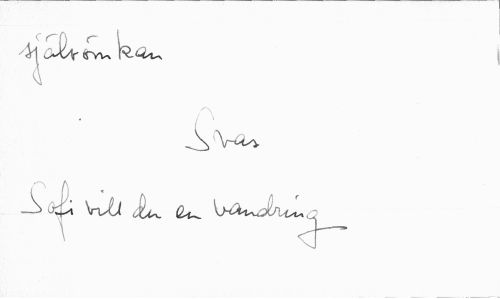 självömkan
Svar
Sofi vill du en vandring